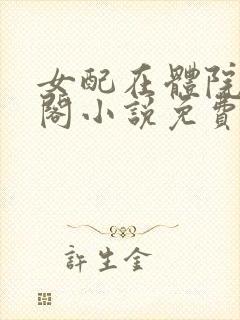 女配在體院
閣小説免費
許生金